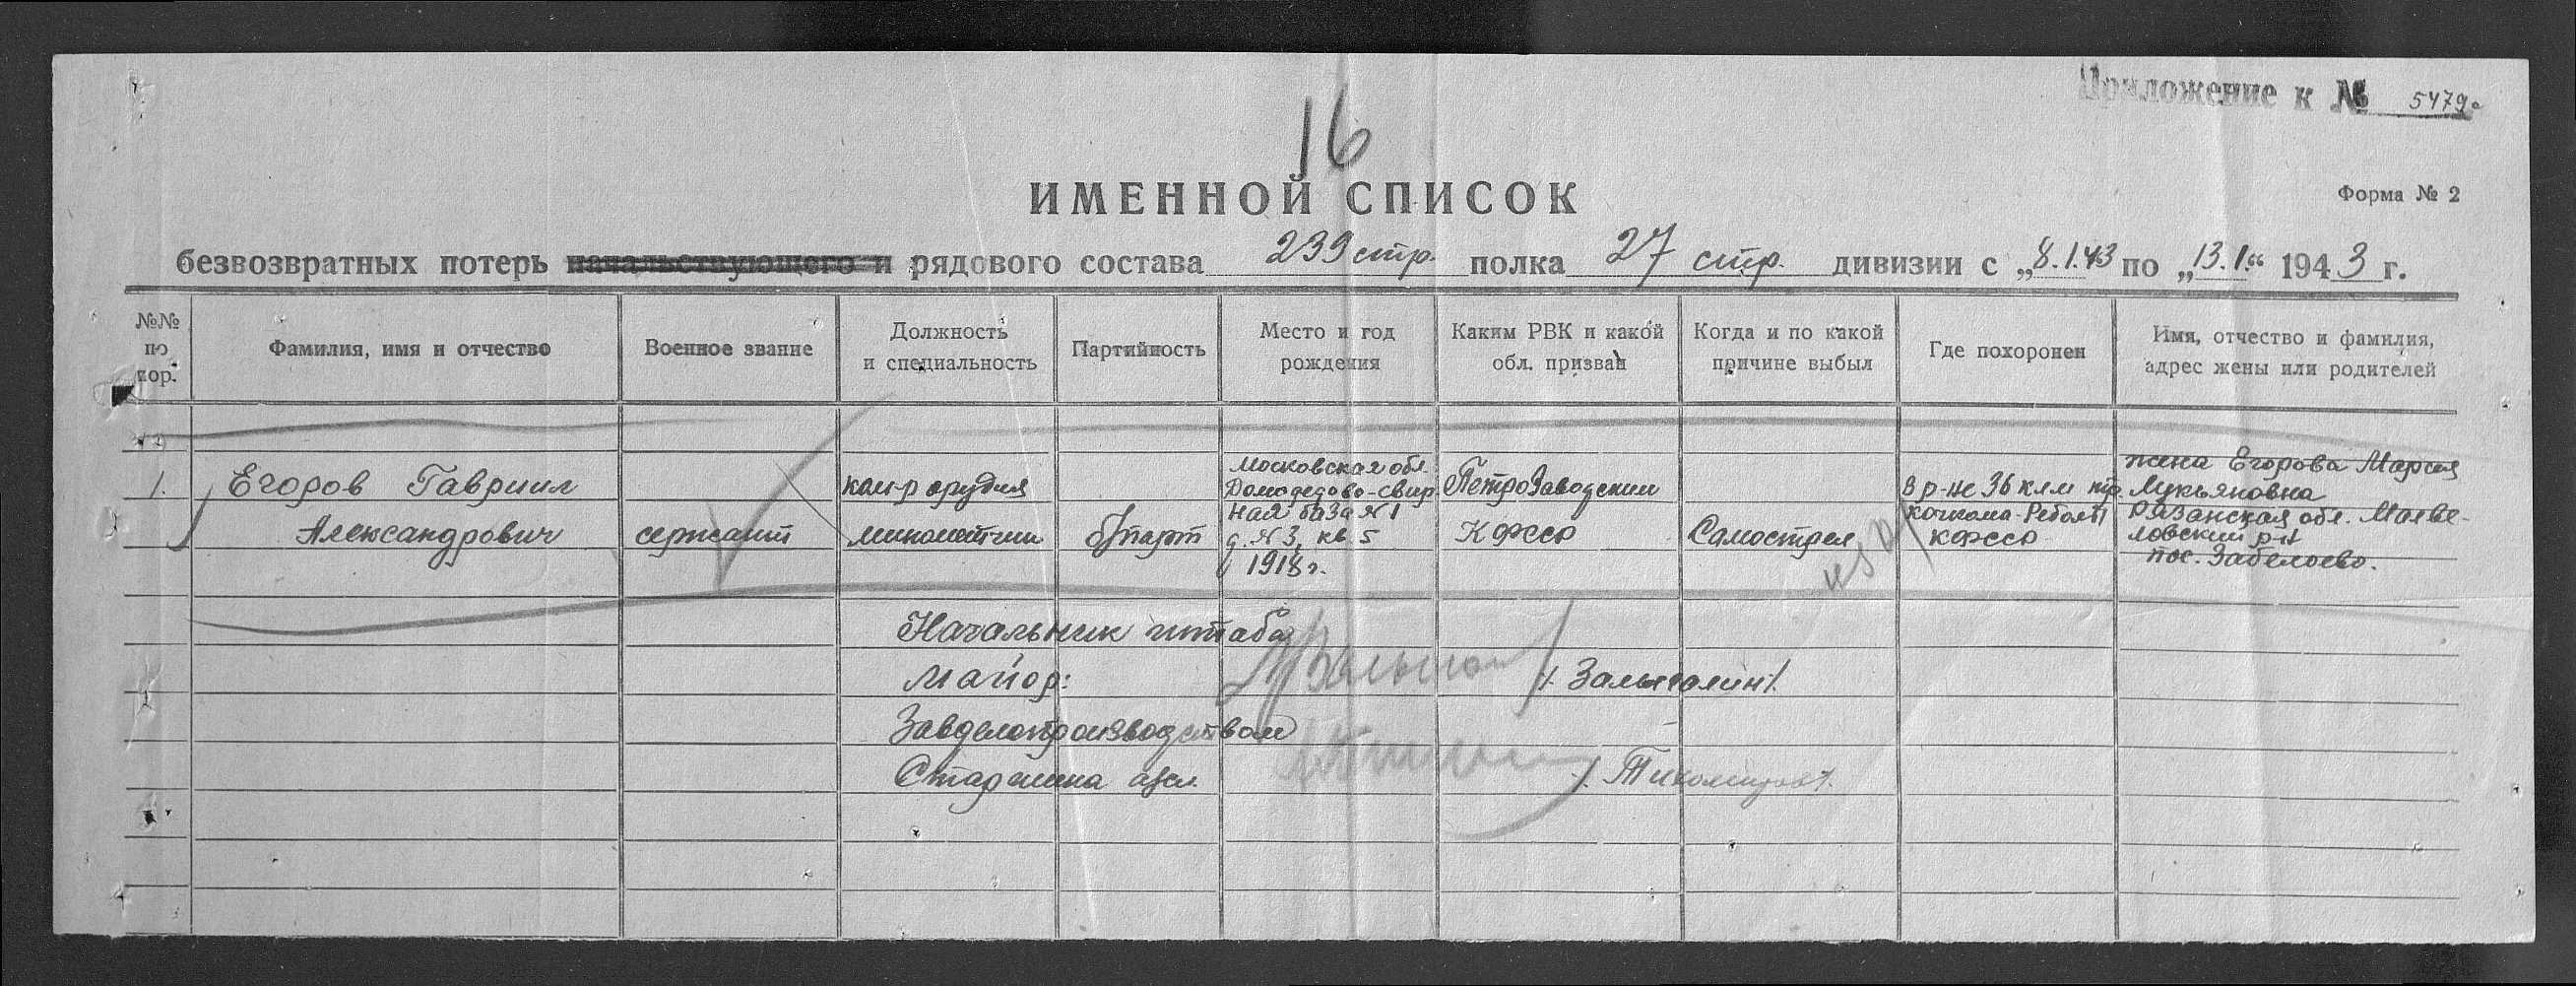 Приложение к № 5479с
16
ИМЕННОЙ СПИСОК
Форма № 2
безвозвратных потерь начальствующего и рядового состава 239 стр. полка 27 стр. дивизии с „8.1.43 по „13.1.“ 1943 г.
№№ по пор.
Фамилия, имя и отчество
Военное звание
Должность и специальность
Партийность
Место и год рождения
Каким РВК и какой обл. призван
Когда и по какой причине выбыл
Где похоронен
Имя, отчество и фамилия, адрес жены или родителей
1.
Егоров Гавриил
Александрович
сержант
ком-р орудия
минометчик
б/парт
Московская обл.
Домодедово-
ная база № 1
д. № 3, кв 5
1918 г.
Петрозаводским
КФССР
Самострел
в р-не 36 клм
кочкома-Реболы
КФССР
жена Егорова Мария
Лукьяновна
Рязанская обл.
ловский р-н
пос.
Начальник штаба
майор:
Завделопроизводством
Старшина а/сл.
/. Тихомиров /.